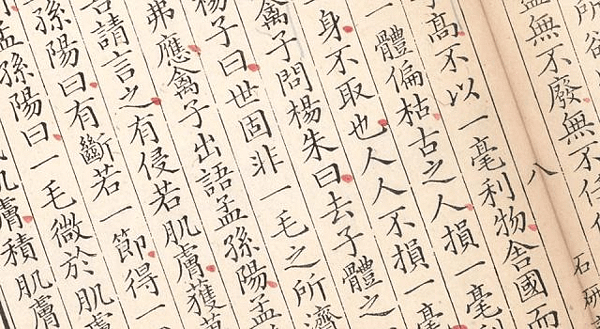 無不廢無不任
八
石研
子高不以一毫利物舍國而
一體偏枯古之人損一毫
身不取也人人不損一毫
禽子問楊朱曰去子體之
楊子曰世固非一毛之所濟
弗應禽子出語孟孫陽孟
言請言之有侵若肌膚獲萬
孟孫陽曰有斷若一節得一
孟孫陽曰一毛微於肌
肌膚積肌膚